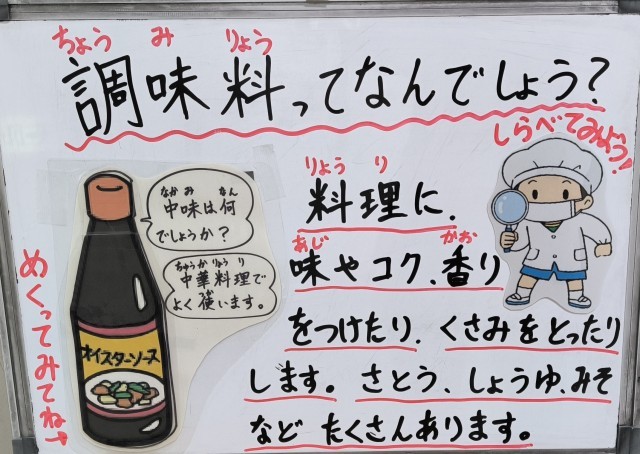 ちょう み りょう
調味料ってなんでしょう?
しらべてみよう!
りょう り
料理に、
あじ かお
味やコク、香り
をつけたり、くさみをとったり
します。さとう、しょうゆ、みそ
など たくさんあります。
なか み なん
中味は、何
でしょうか?
ちゅうかりょうり
中華料理で
よく使います。
オイスターソース
めくってみてね→